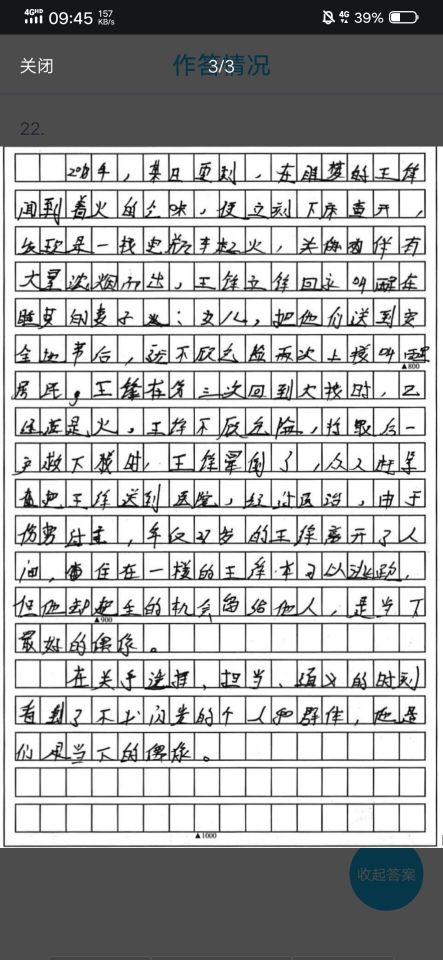 4GHD 09:45 157 KB/s 4G 39%
关闭 3/3 作答情况
22.
年，某日夏到，在睡梦的王锋
闻到着火的气味，便立刻下床查开，
发现是一栋电 车起火，并 有
大量浓烟而出，王锋立 回家叫醒在
睡梦的妻子 、女儿，把他们送到安
全地带后，还不顾危险两次上楼叫醒
▲800
居民，王锋在第三次回到火 时，已
是火，王锋不顾危险，将最后一
救下楼时，王锋晕倒了，众人
把王锋送到医院，经过医治，由于
伤势过重，年仅 岁的王锋离开了人
间，住在一楼的王锋本可以逃跑，
但他却把生的机会留给他人，是当下
▲900
最好的偶像。
在关乎选择、担当、 义的时刻
看到了不少闪光的个人和群体，他是
们是当下的偶像。
▲1000
收起答案